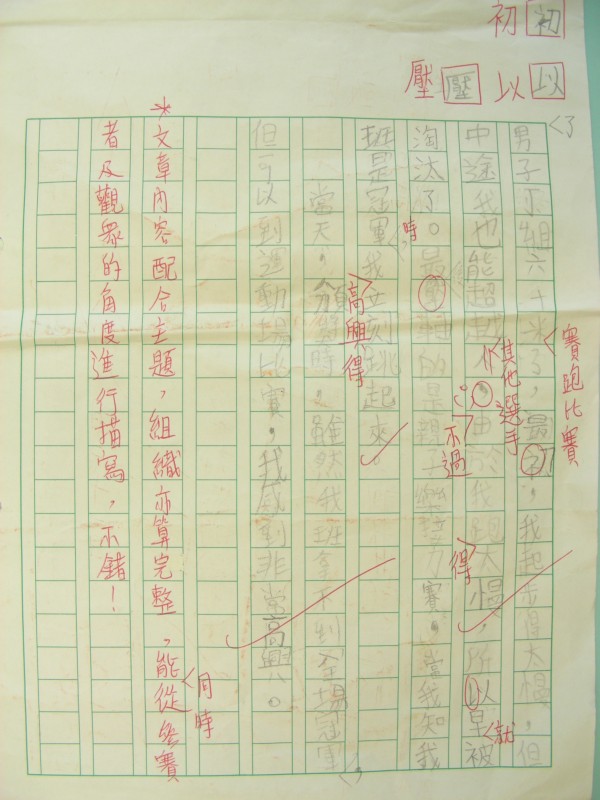 初初
壓壓以以
了
男子丙組六十米了，最，我起步得太慢，但
賽跑比賽
中途我也能超越。由於我跑太慢，所以早被
其他選手
不過
得
就
淘汰了。最是親子樂接力賽。當我知我
時
班是冠軍我立刻跳起來。
高興得
當天，頒獎時，雖然我班拿不到全場冠軍
但可以到運動場比賽，我感到非常高興。
*文章內容配合主題，組織亦算完整，能從參賽
同時
者及觀眾的角度進行描寫，不錯！